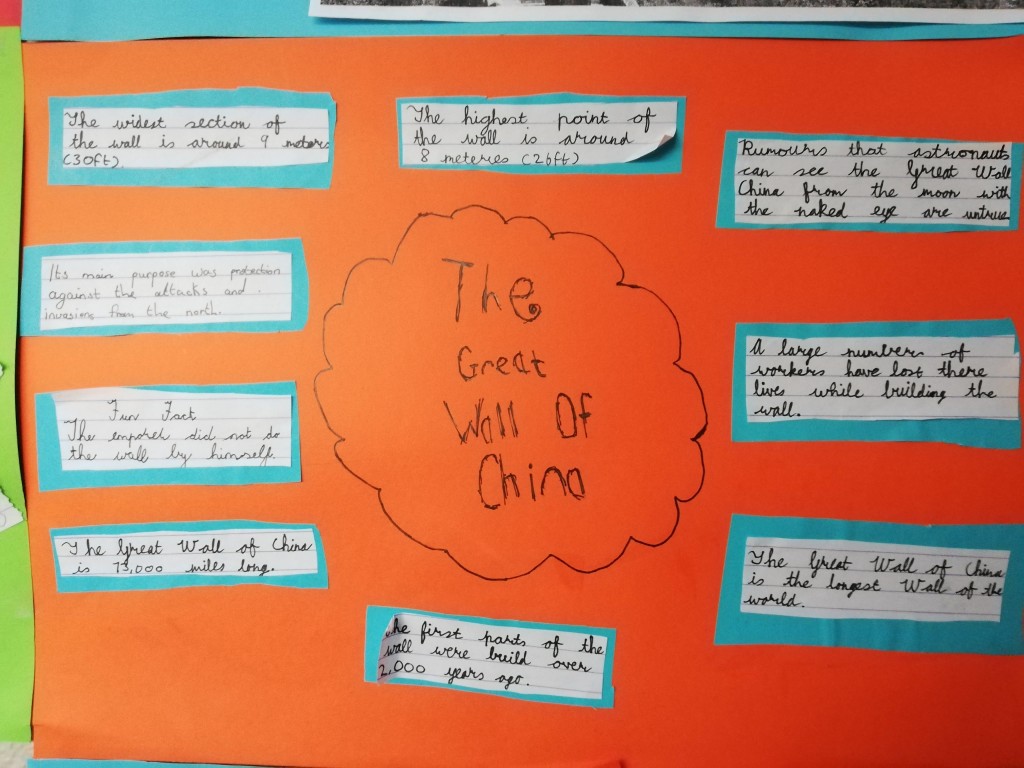 The widest section of
the wall is around 9 meters
(30ft).
The highest point of
the wall is around
8 meteries (26ft)
Rumours that astronauts
can see the Great Wall
China from the moon with
the naked eye are untrue
Its main purpose was protection
against the attacks and
invasions from the north.
The
Great
Wall Of
China
A large numbers of
workers have lost there
lives while building the
wall.
Fun Fact
The emporeh did not do
the wall by himself.
The Great Wall of China
is 13,000 miles long.
The Great Wall of China
is the longest Wall of the
world.
he first parts of the
wall were build over
2,000 years ago.